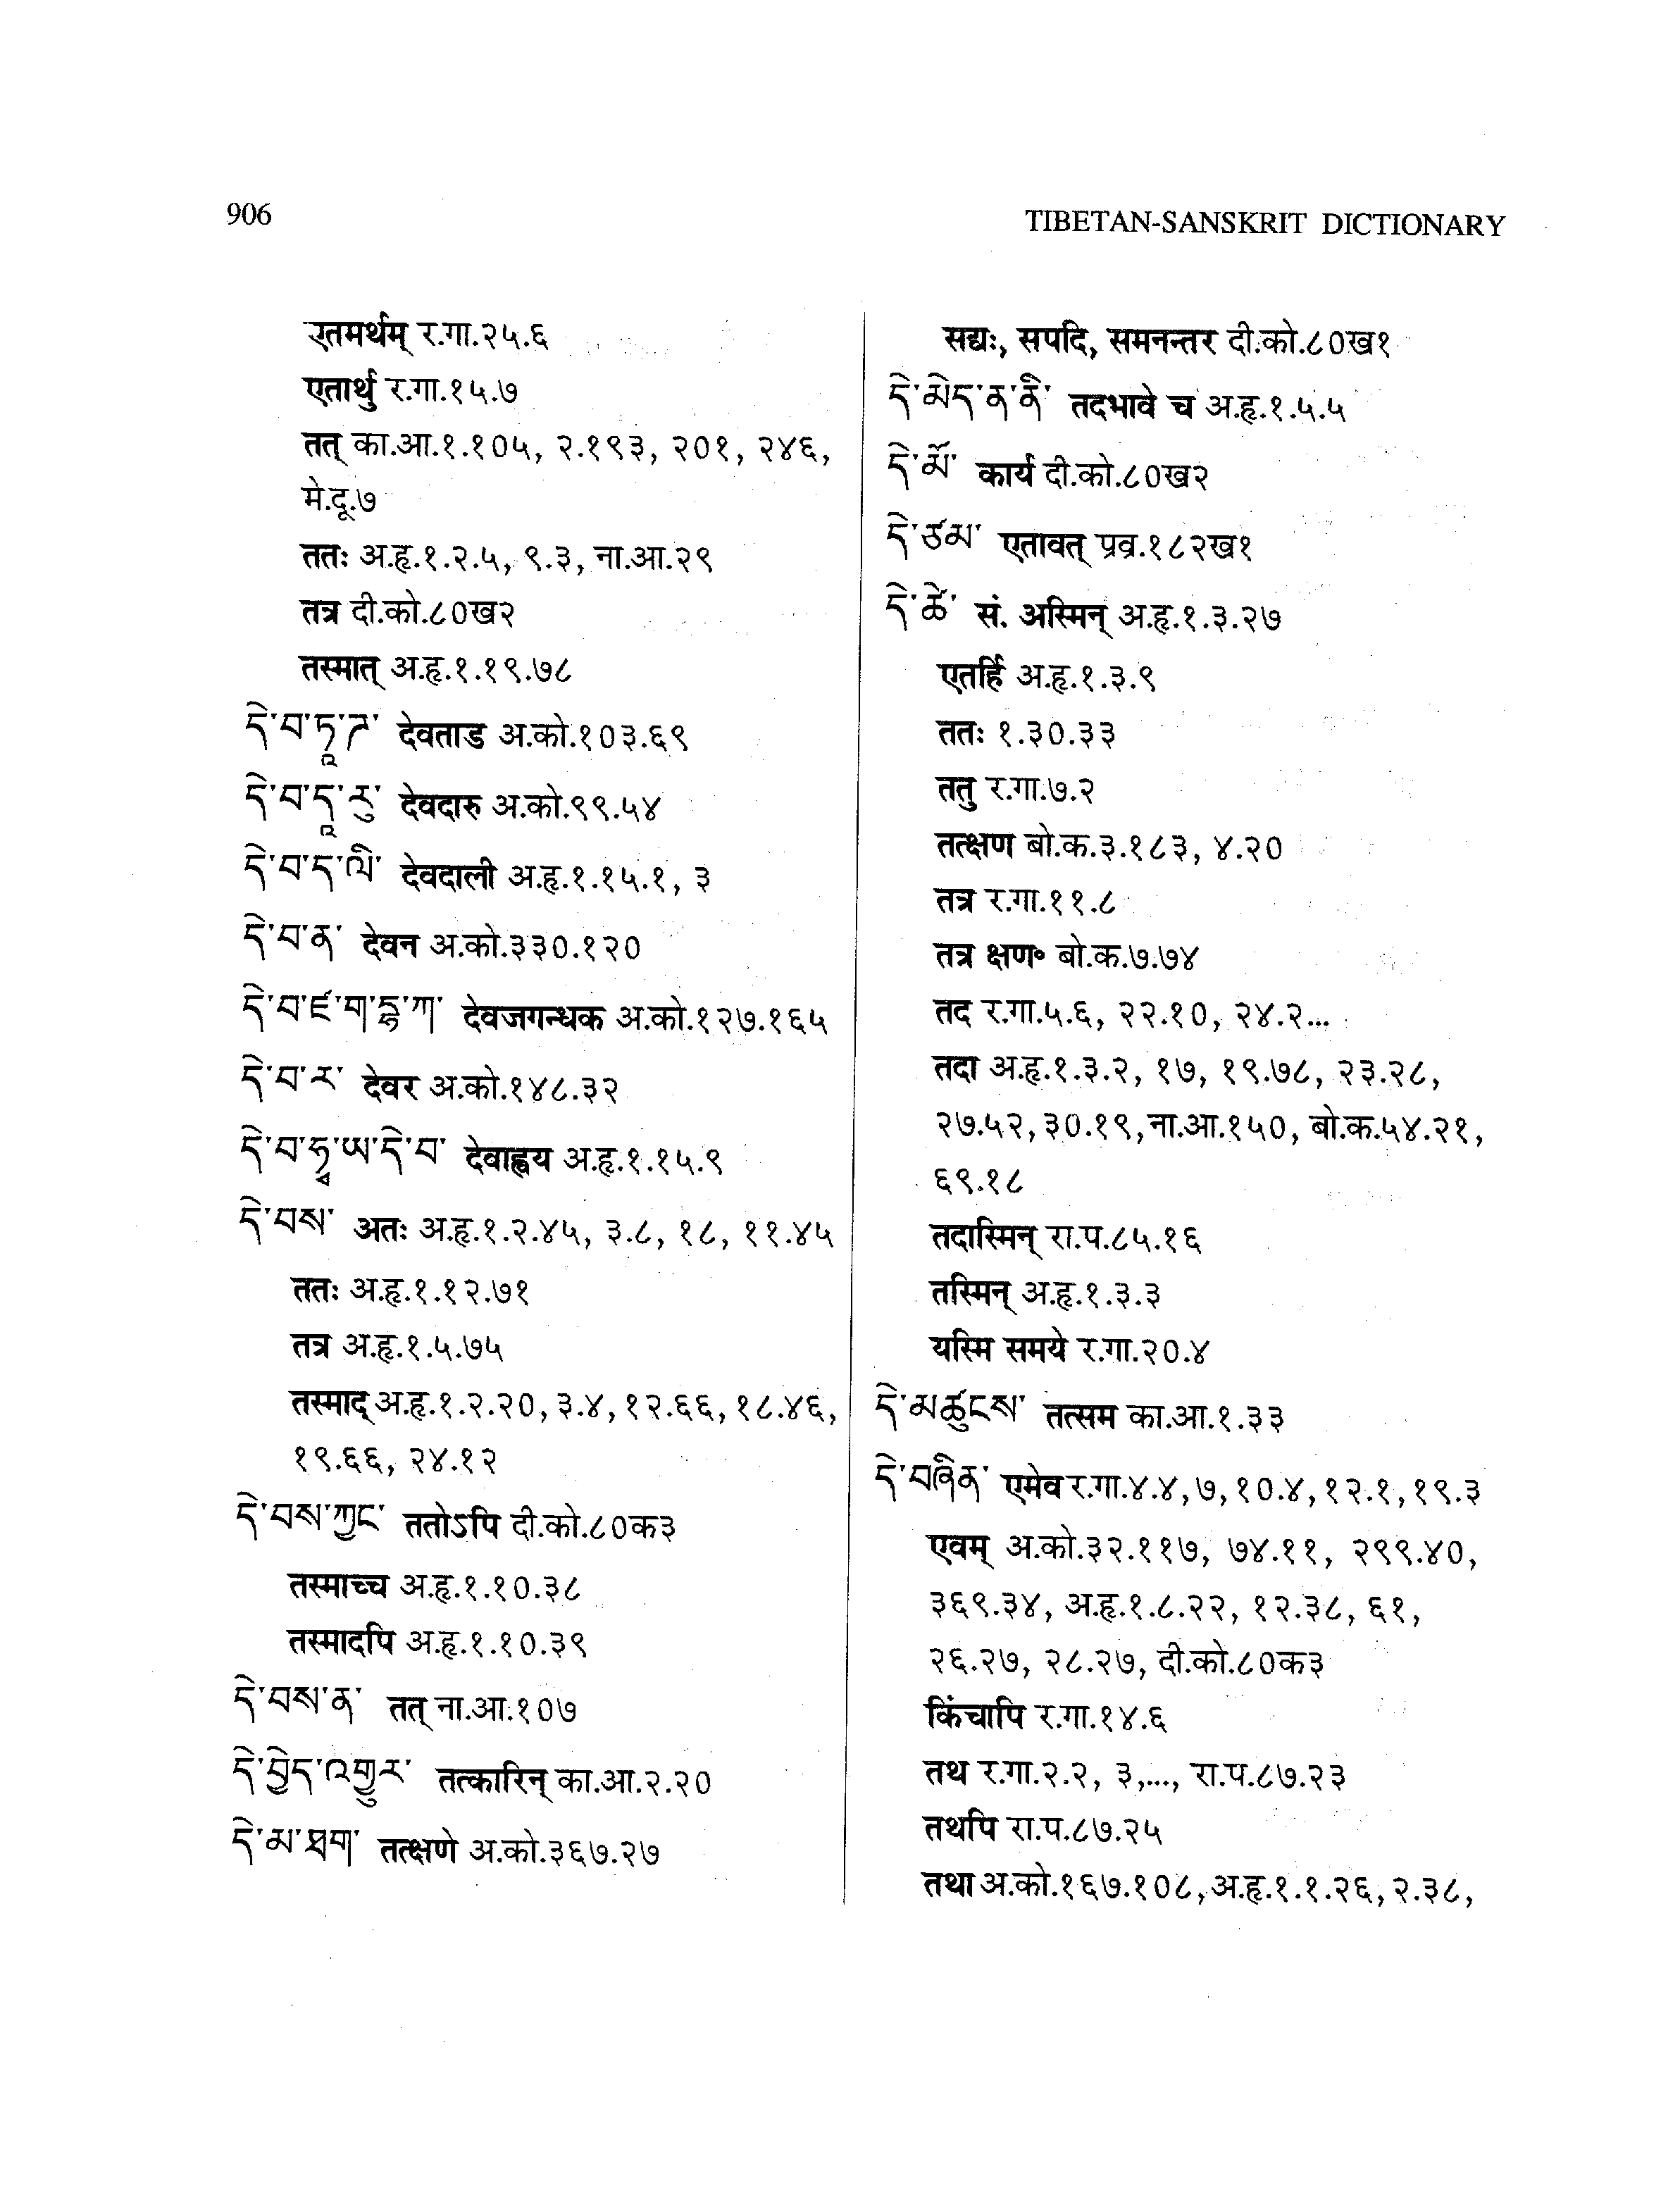 906
TIBETAN-SANSKRIT DICTIONARY
एतमर्थम् र.गा.२५.६
एतार्थु र.गा.१५.७
तत् का.आ.१.१०५, २.१९३, २०१, २४६,
मे.दू.७
ततः अ.हृ.१.२.५, ९.३, ना.आ.२९
तत्र दी.को.८०ख२
तस्मात् अ.हृ.१.१९.७८
དེ་བ་ཏཱ་ཌ་ देवताड अ.को.१०३.६९
དེ་བ་དཱ་རུ་ देवदारु अ.को.९९.५४
དེ་བ་ད་ལི་ देवदाली अ.हृ.१.१५.१, ३
དེ་བ་ན་ देवन अ.को.३३०.१२०
དེ་བ་ཛ་ག་ནྡྷ་ཀ་ देवजगन्धक अ.को.१२७.१६५
དེ་བ་ར་ देवर अ.को.१४८.३२
དེ་བ་ཧྭ་ཡ་དེ་བ་ देवाह्वय अ.हृ.१.१५.९
དེ་བས་ अतः अ.हृ.१.२.४५, ३.८, १८, ११.४५
ततः अ.हृ.१.१२.७१
तत्र अ.हृ.१.५.७५
तस्माद् अ.हृ.१.२.२०, ३.४, १२.६६, १८.४६,
१९.६६, २४.१२
དེ་བས་ཀྱང་ ततोऽपि दी.को.८०क३
तस्माच्च अ.हृ.१.१०.३८
तस्मादपि अ.हृ.१.१०.३९
དེ་བས་ན་ तत् ना.आ.१०७
དེ་བྱེད་འགྱུར་ तत्कारिन् का.आ.२.२०
དེ་མ་ཐག་ तत्क्षणे अ.को.३६७.२७
सद्यः, सपदि, समनन्तर दी.को.८०ख१
དེ་མེད་ན་ནི་ तदभावे च अ.हृ.१.५.५
དེ་མོ་ कार्य दी.को.८०ख२
དེ་ཙམ་ एतावत् प्रव्र.१८२ख१
དེ་ཚེ་ सं. अस्मिन् अ.हृ.१.३.२७
एतर्हि अ.हृ.१.३.९
ततः १.३०.३३
ततु र.गा.७.२
तत्क्षण बो.क.३.१८३, ४.२०
तत्र र.गा.११.८
तत्र क्षण॰ बो.क.७.७४
तद र.गा.५.६, २२.१०, २४.२...
तदा अ.हृ.१.३.२, १७, १९.७८, २३.२८,
२७.५२, ३०.१९, ना.आ.१५०, बो.क.५४.२१,
६९.१८
तदास्मिन् रा.प.८५.१६
तस्मिन् अ.हृ.१.३.३
यस्मि समये र.गा.२०.४
དེ་མཚུངས་ तत्सम का.आ.१.३३
དེ་བཞིན་ एमेव र.गा.४.४, ७, १०.४, १२.१, १९.३
एवम् अ.को.३२.११७, ७४.११, २९९.४०,
३६९.३४, अ.हृ.१.८.२२, १२.३८, ६१,
२६.२७, २८.२७, दी.को.८०क३
किंचापि र.गा.१४.६
तथ र.गा.२.२, ३,..., रा.प.८७.२३
तथपि रा.प.८७.२५
तथा अ.को.१६७.१०८, अ.हृ.१.१.२६, २.३८,